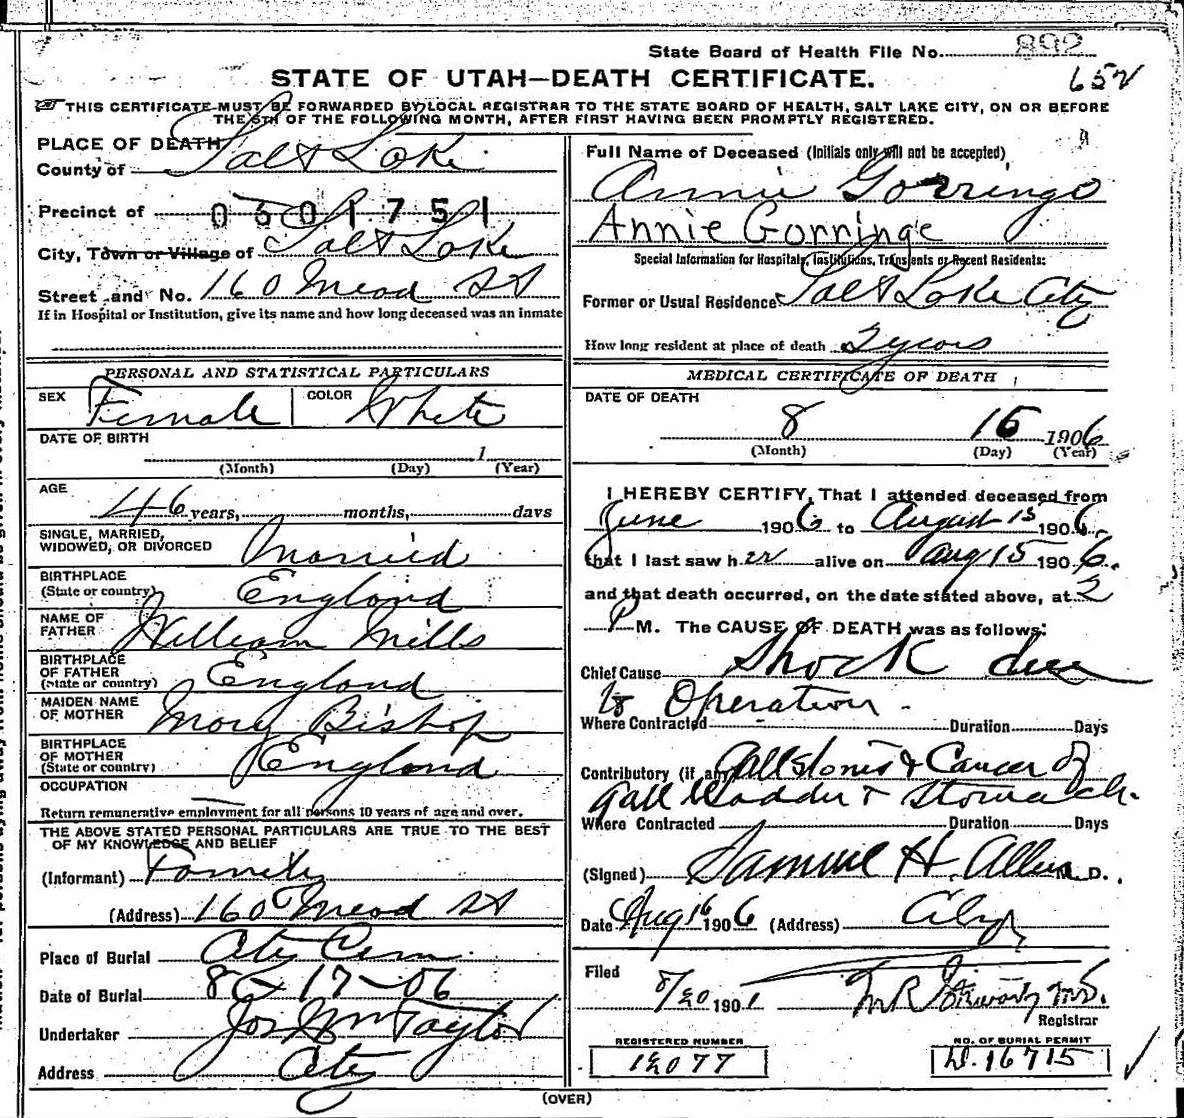 State Board of Health File No. 892
STATE OF UTAH—DEATH CERTIFICATE.
652
THIS CERTIFICATE MUST BE FORWARDED BY LOCAL REGISTRAR TO THE STATE BOARD OF HEALTH, SALT LAKE CITY, ON OR BEFORE
THE 5TH OF THE FOLLOWING MONTH, AFTER FIRST HAVING BEEN PROMPTLY REGISTERED.
PLACE OF DEATH
County of Salt Lake
Precinct of 0601751
City, Town or Village of Salt Lake
Street and No. 160 Mead St
If in Hospital or Institution, give its name and how long deceased was an inmate
PERSONAL AND STATISTICAL PARTICULARS
SEX Female COLOR White
DATE OF BIRTH
1
(Month) (Day) (Year)
AGE
46 years, months, days
SINGLE, MARRIED,
WIDOWED, OR DIVORCED Married
BIRTHPLACE
(State or country) England
NAME OF
FATHER William Mills
BIRTHPLACE
OF FATHER
(State or country) England
MAIDEN NAME
OF MOTHER Mary Bishop
BIRTHPLACE
OF MOTHER
(State or country) England
OCCUPATION
Return remunerative employment for all persons 10 years of age and over.
THE ABOVE STATED PERSONAL PARTICULARS ARE TRUE TO THE BEST
OF MY KNOWLEDGE AND BELIEF
(Informant) Family
(Address) 160 Mead St
Place of Burial City Cem
Date of Burial 8-17-06
Undertaker Jos Wm Taylor
Address City
Full Name of Deceased (Initials only will not be accepted)
Annie Gorringe
Annie Gorringe
Special Information for Hospitals, Institutions, Transients or Recent Residents:
Former or Usual Residence Salt Lake City
How long resident at place of death 2 years
MEDICAL CERTIFICATE OF DEATH
DATE OF DEATH
8 15 1906
(Month) (Day) (Year)
I HEREBY CERTIFY, That I attended deceased from
June 1906 to August 15 1906,
that I last saw her alive on Aug 15 1906.
and that death occurred, on the date stated above, at 2
P M. The CAUSE OF DEATH was as follows:
Chief Cause Shock due
to Operation.
Where Contracted Duration Days
Contributory (if any) Gallstones & Cancer of
Gall bladder & Stomach.
Where Contracted Duration Days
(Signed) Samuel H. Allen M. D.
Date Aug 16 1906 (Address) City
Filed 8/20 190
Registrar
REGISTERED NUMBER
12077
NO. OF BURIAL PERMIT
D.16715
(OVER)